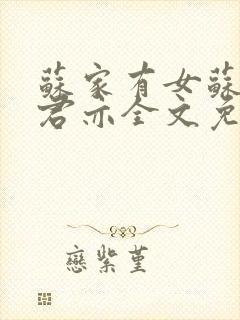 蘇家有女蘇
君亦全文免
戀紫堇